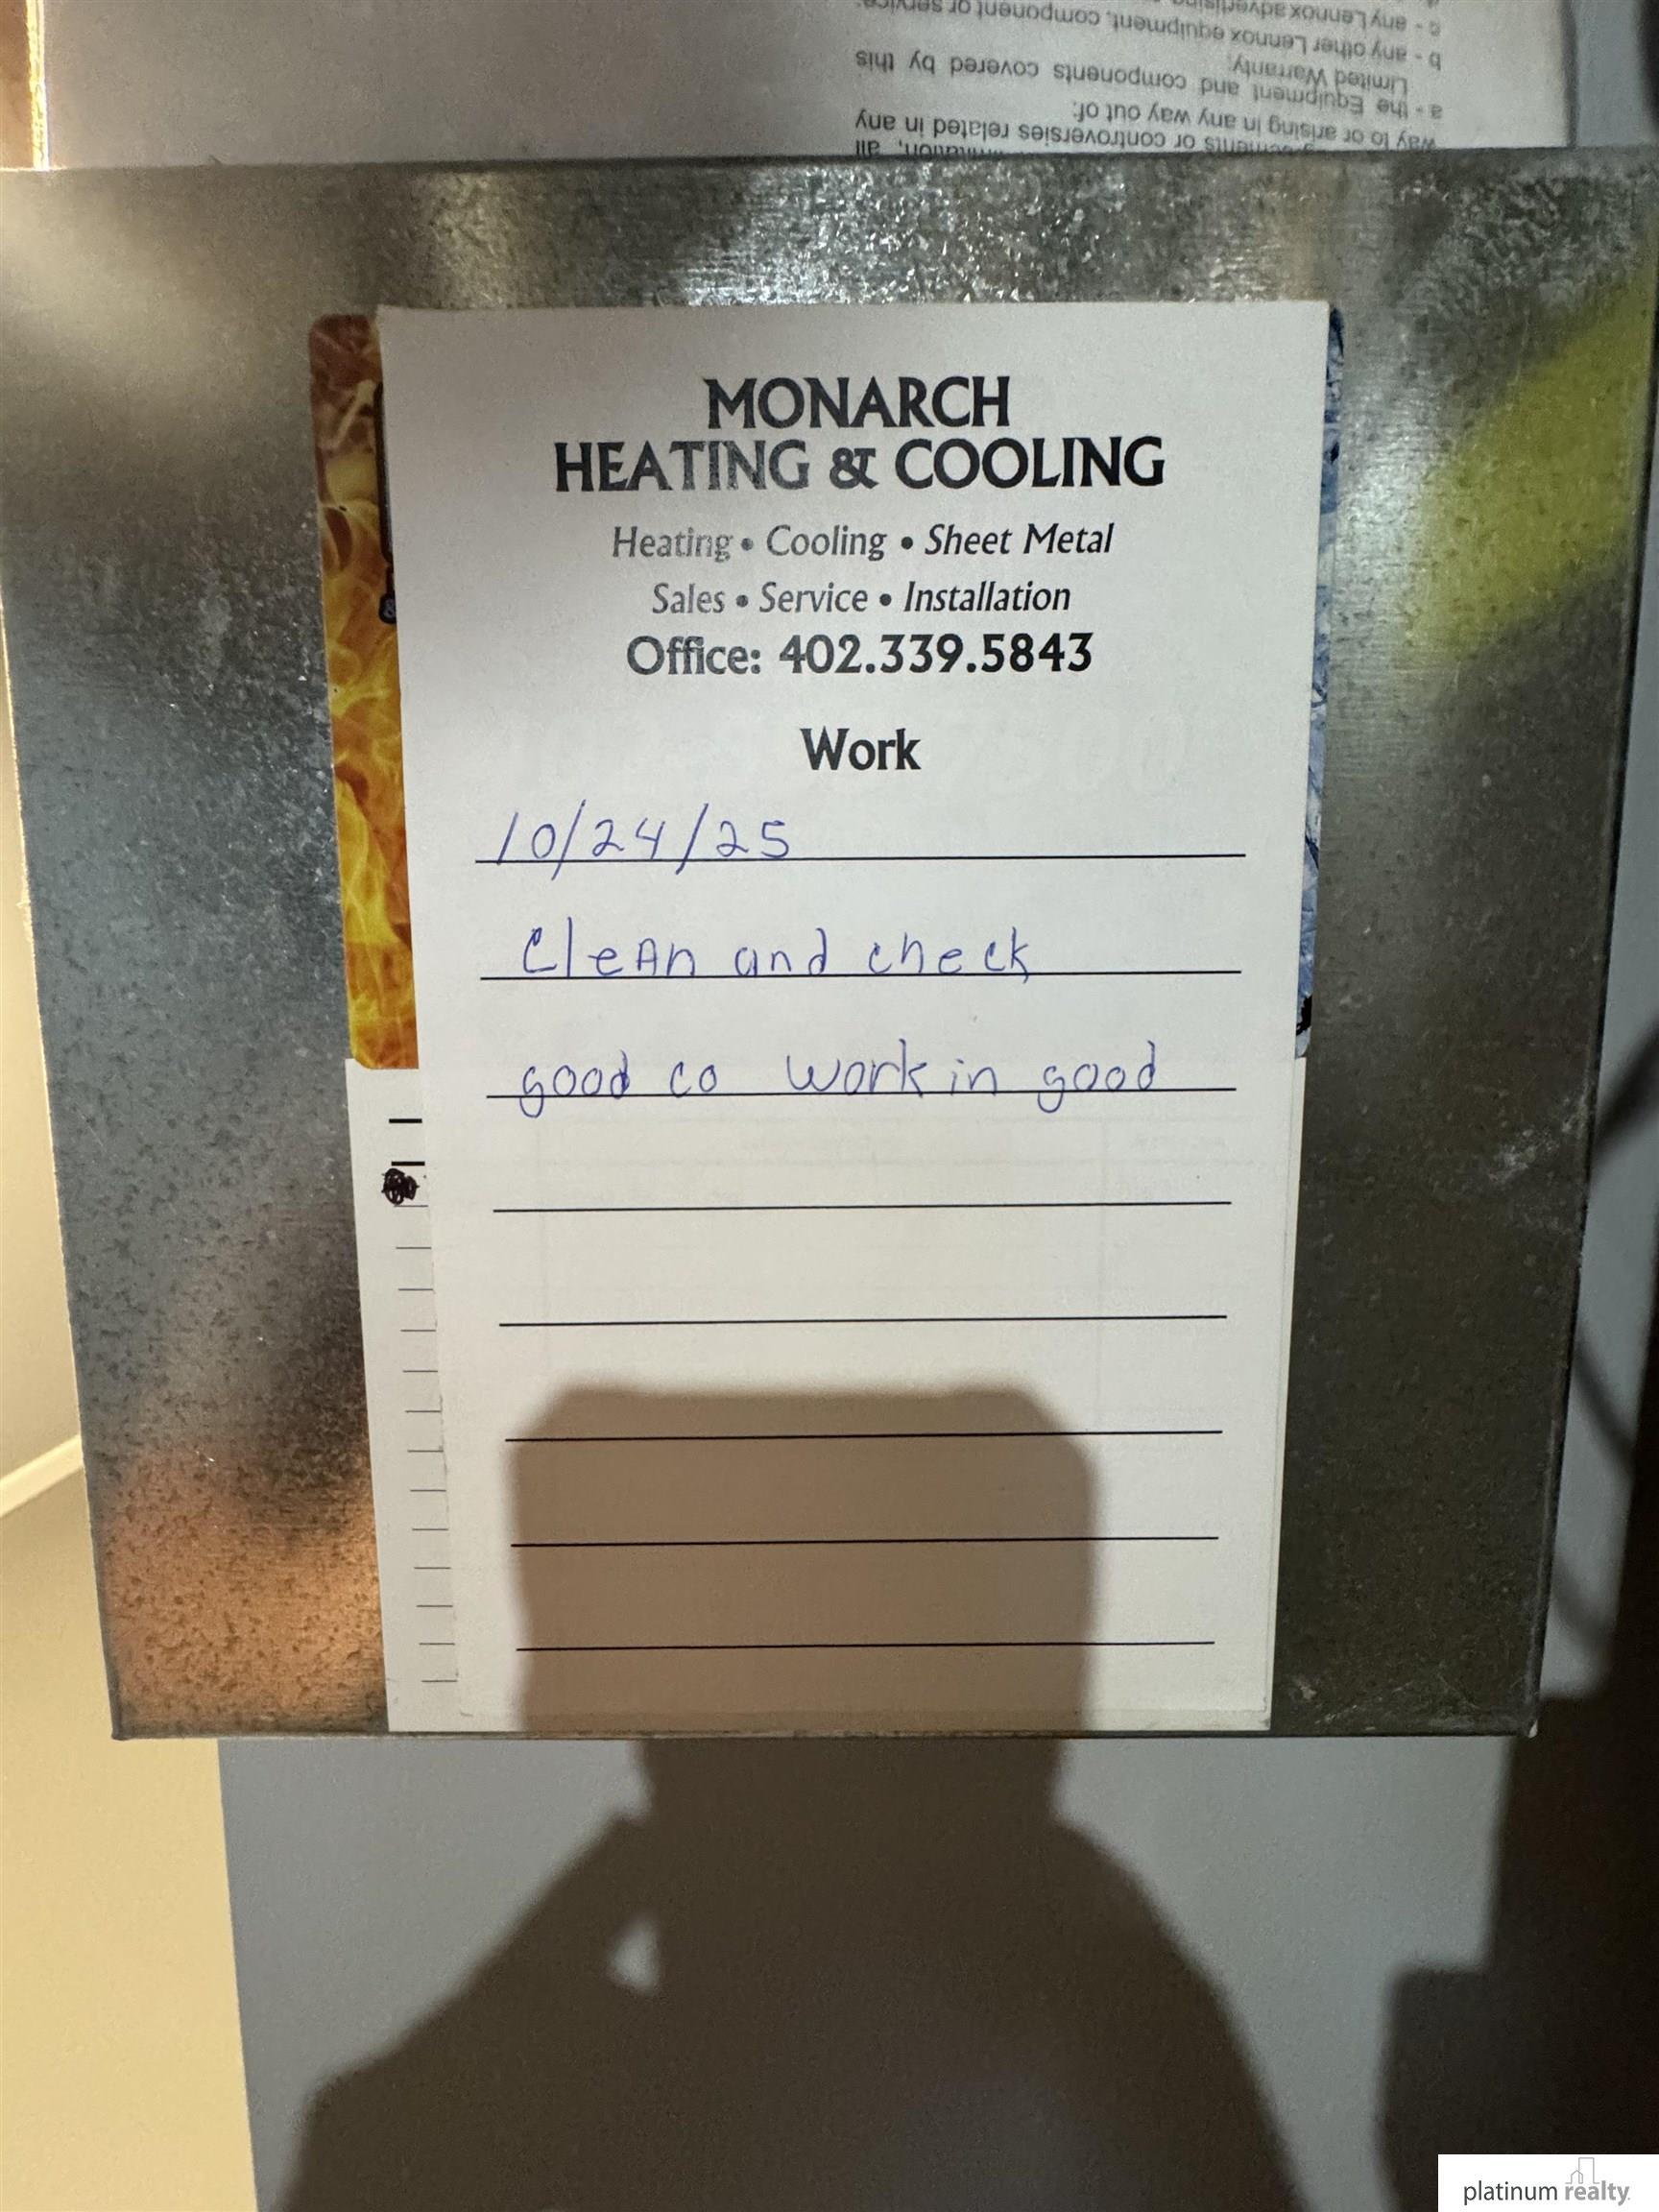 c - any Lennox advertising
b - any other Lennox equipment, component or service.
Limited Warranty.
a - the Equipment and components covered by this
way to or arising in any way out of:
or controversies related in any
all
MONARCH
HEATING & COOLING
Heating • Cooling • Sheet Metal
Sales • Service • Installation
Office: 402.339.5843
Work
10/24/25
CleAn and check
good co work in good
platinum realty